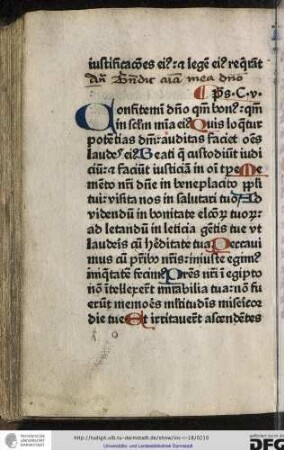 iustificatões ei⁹: ⁊ legẽ ei⁹ reqͥrãt
Añ Bñdic aĩa mea dño
ps. C. v.
Confitemĩ dño qm̃ bon⁹: qm̃
in sclm̃ mĩa ei⁹ Quis loqͣtur
potẽtias dñi: auditas faciet oẽs
laudes ei⁹ Beati qͥ custodiũt iudi
ciũ: ⁊ faciũt iusticiã in oĩ tp̃e Me
mẽto nr̃i dñe in beneplacito ppl̃i
tui: visita nos in salutari tuo Ad
videndũ in bonitate elcõꝝ tuoꝝ:
ad letandũ in leticia gẽtis tue vt
lauderis cũ hẽditate tua Peccaui
mus cũ pr̃ibꝰ nr̃is: iniuste egimꝰ
iniqͥtatẽ fecimꝰ Pr̃es nr̃i ĩ egipto
nõ ĩtellexer̃t mirabilia tua: nõ fu
erũt memoẽs mltitudĩs misericor
die tue Et irritauer̃t ascendẽtes
http://tudigit.ulb.tu-darmstadt.de/show/inc-ii-18/0210
Universitäts- und Landesbibliothek Darmstadt
DFG